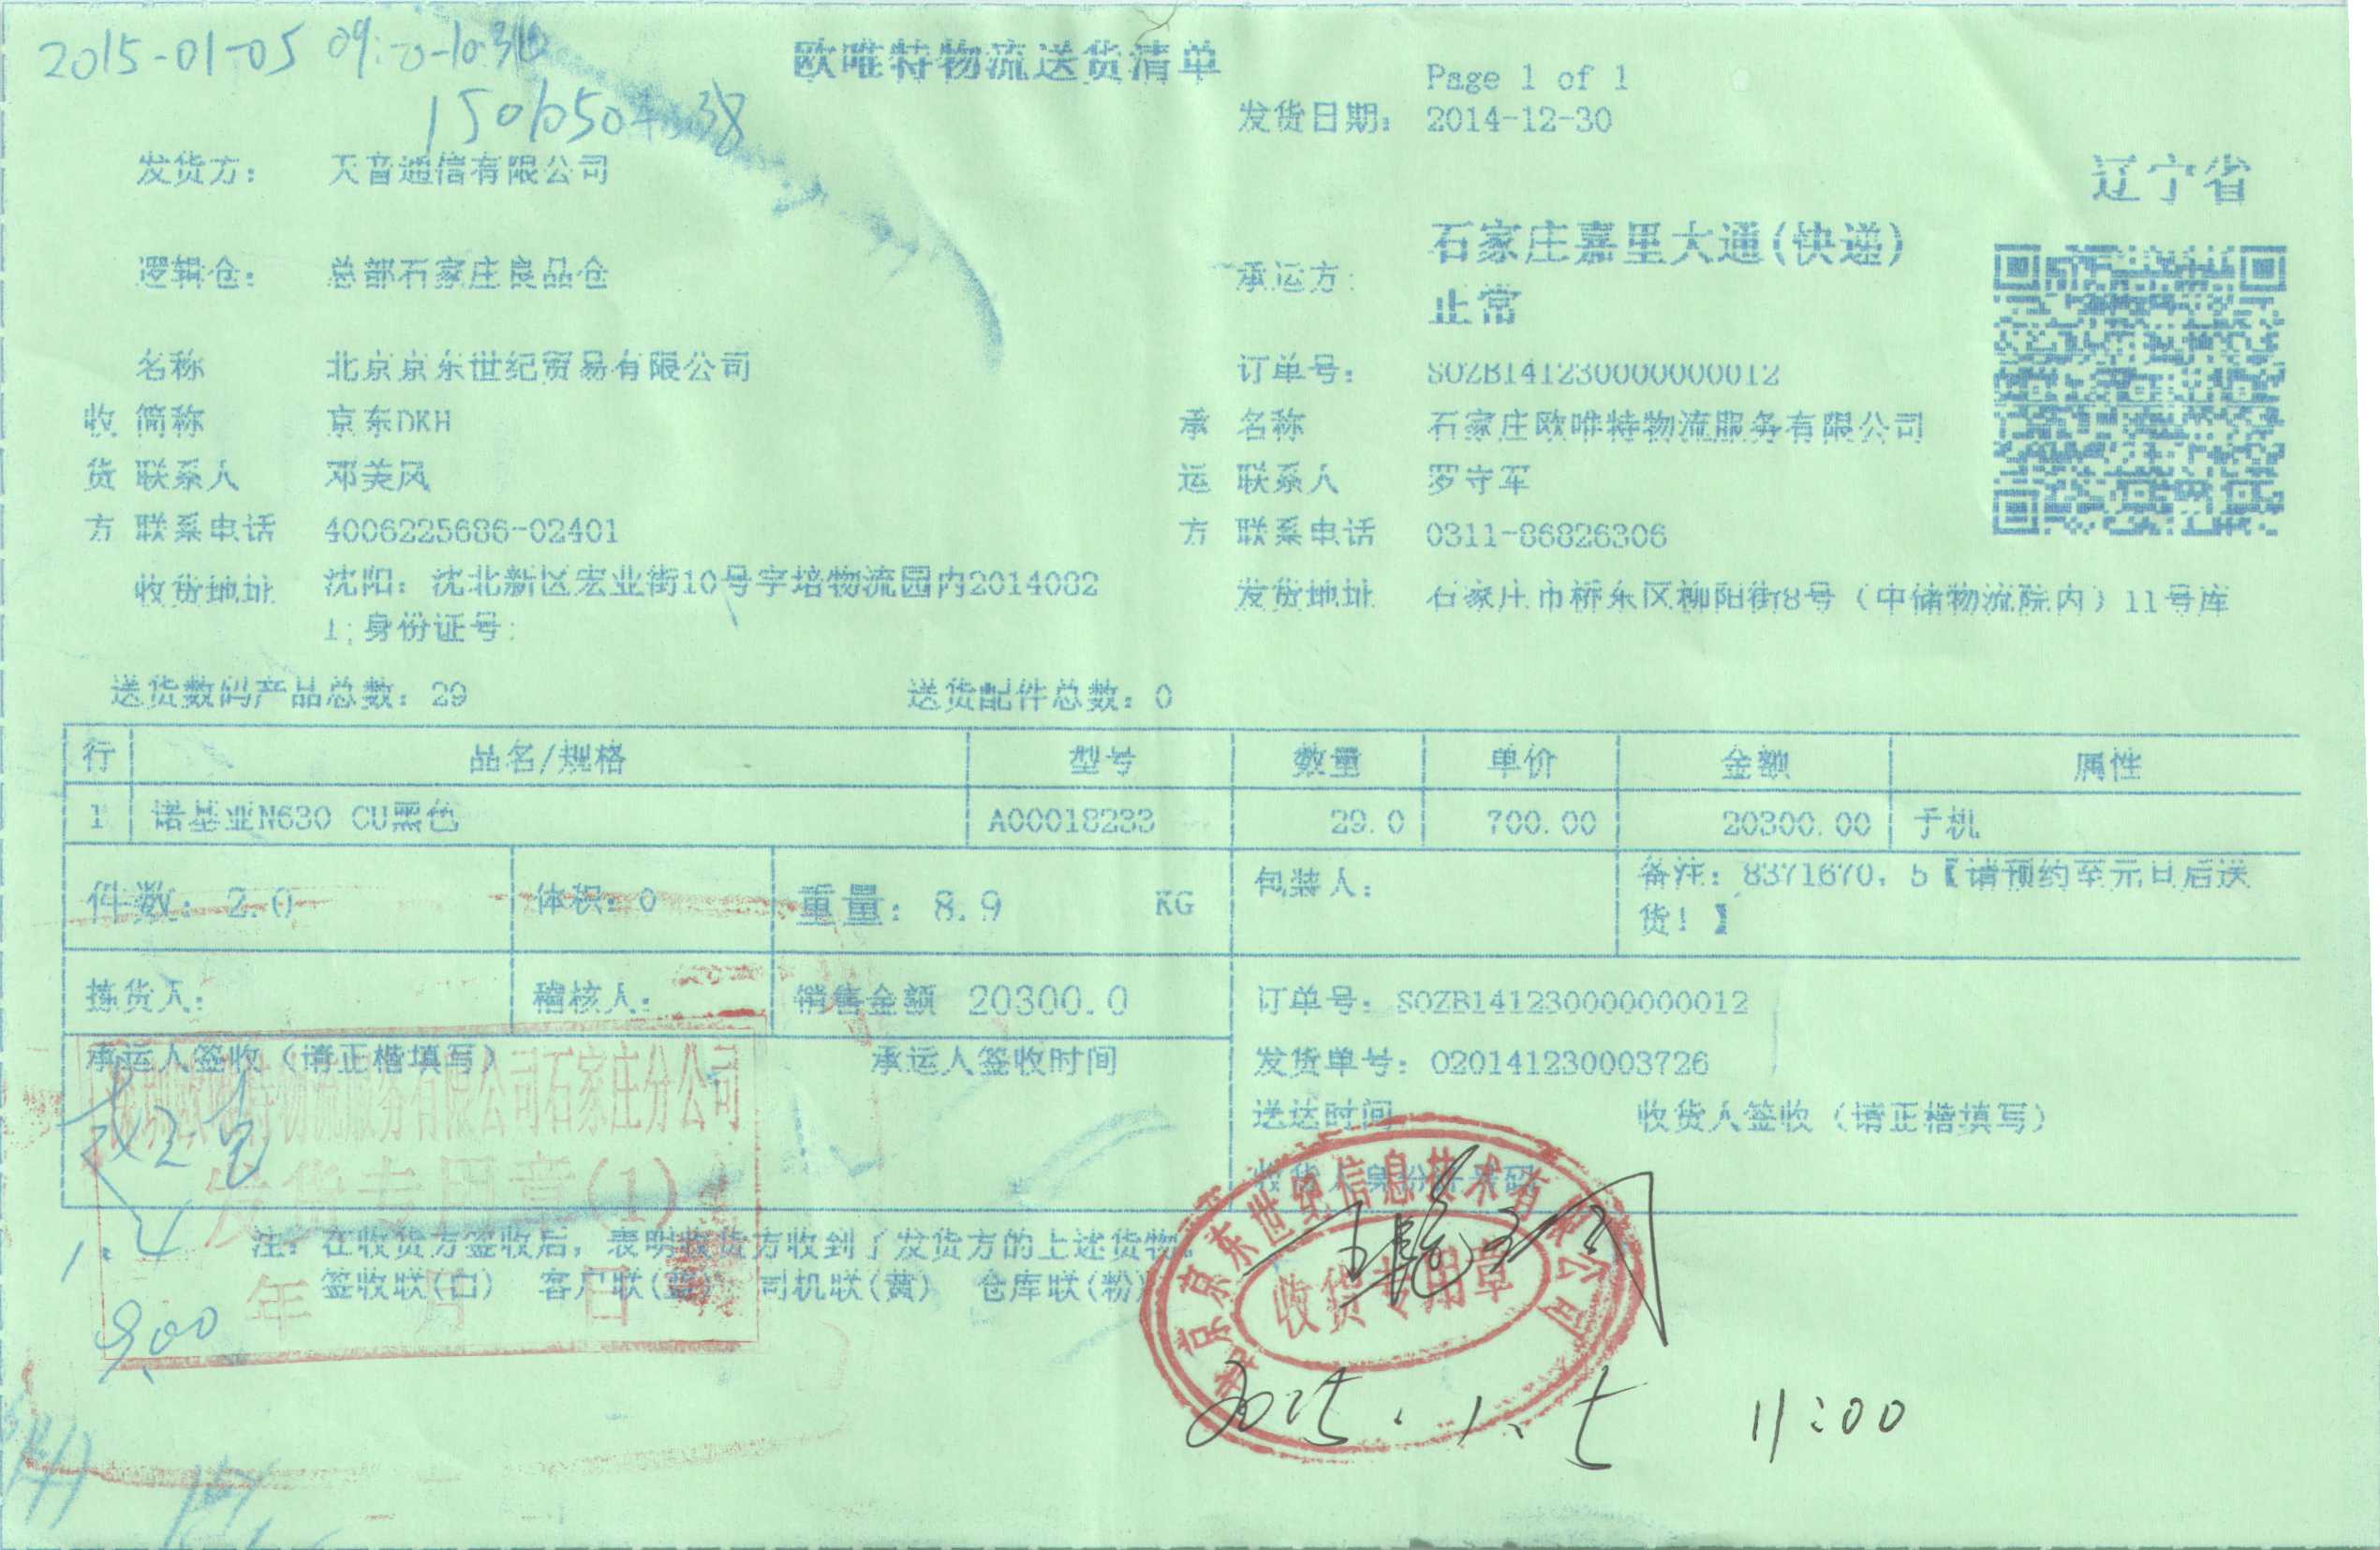 2015-01-05 09:
欧唯特物流送货清单
Page 1 of 1
发货日期: 2014-12-30
发货方: 天音通信有限公司
辽宁省
逻辑仓: 总部石家庄良品仓
承运方: 石家庄嘉里大通(快递)
正常
名称 北京京东世纪贸易有限公司
订单号: SOZB141230000000012
收 简称 京东DKH
承 名称 石家庄欧唯特物流服务有限公司
货 联系人 邓美风
运 联系人 罗守军
方 联系电话 4006225686-02401
方 联系电话 0311-86826306
收货地址 沈阳: 沈北新区宏业街10号宇培物流园内2014082
1;身份证号:
发货地址 石家庄市桥东区柳阳街8号（中储物流院内）11号库
送货数码产品总数: 29 送货配件总数: 0
行 品名/规格 型号 数量 单价 金额 属性
1 诺基亚N630 CU黑色 A00018233 29.0 700.00 20300.00 手机
件数: 2.0 体积: 0 重量: 8.9 KG 包装人:
备注: 8371670, 5【请预约至元旦后送
货! 】
拣货人: 稽核人: 销售金额 20300.0 订单号: SOZB141230000000012
承运人签收（请正楷填写） 承运人签收时间 发货单号: 020141230003726
欧唯特物流服务有限公司石家庄分公司
送达时间 收货人签收（请正楷填写）
收货人身份证号码
发货专用章(1)
京东世纪信息技术有限公司
收货专用章
注: 在收货方签收后, 表明收货方收到了发货方的上述货物。
签收联(白) 客户联(蓝) 司机联(黄) 仓库联(粉)
年 月 日
1.4
9.00
2015.1.5 11:00